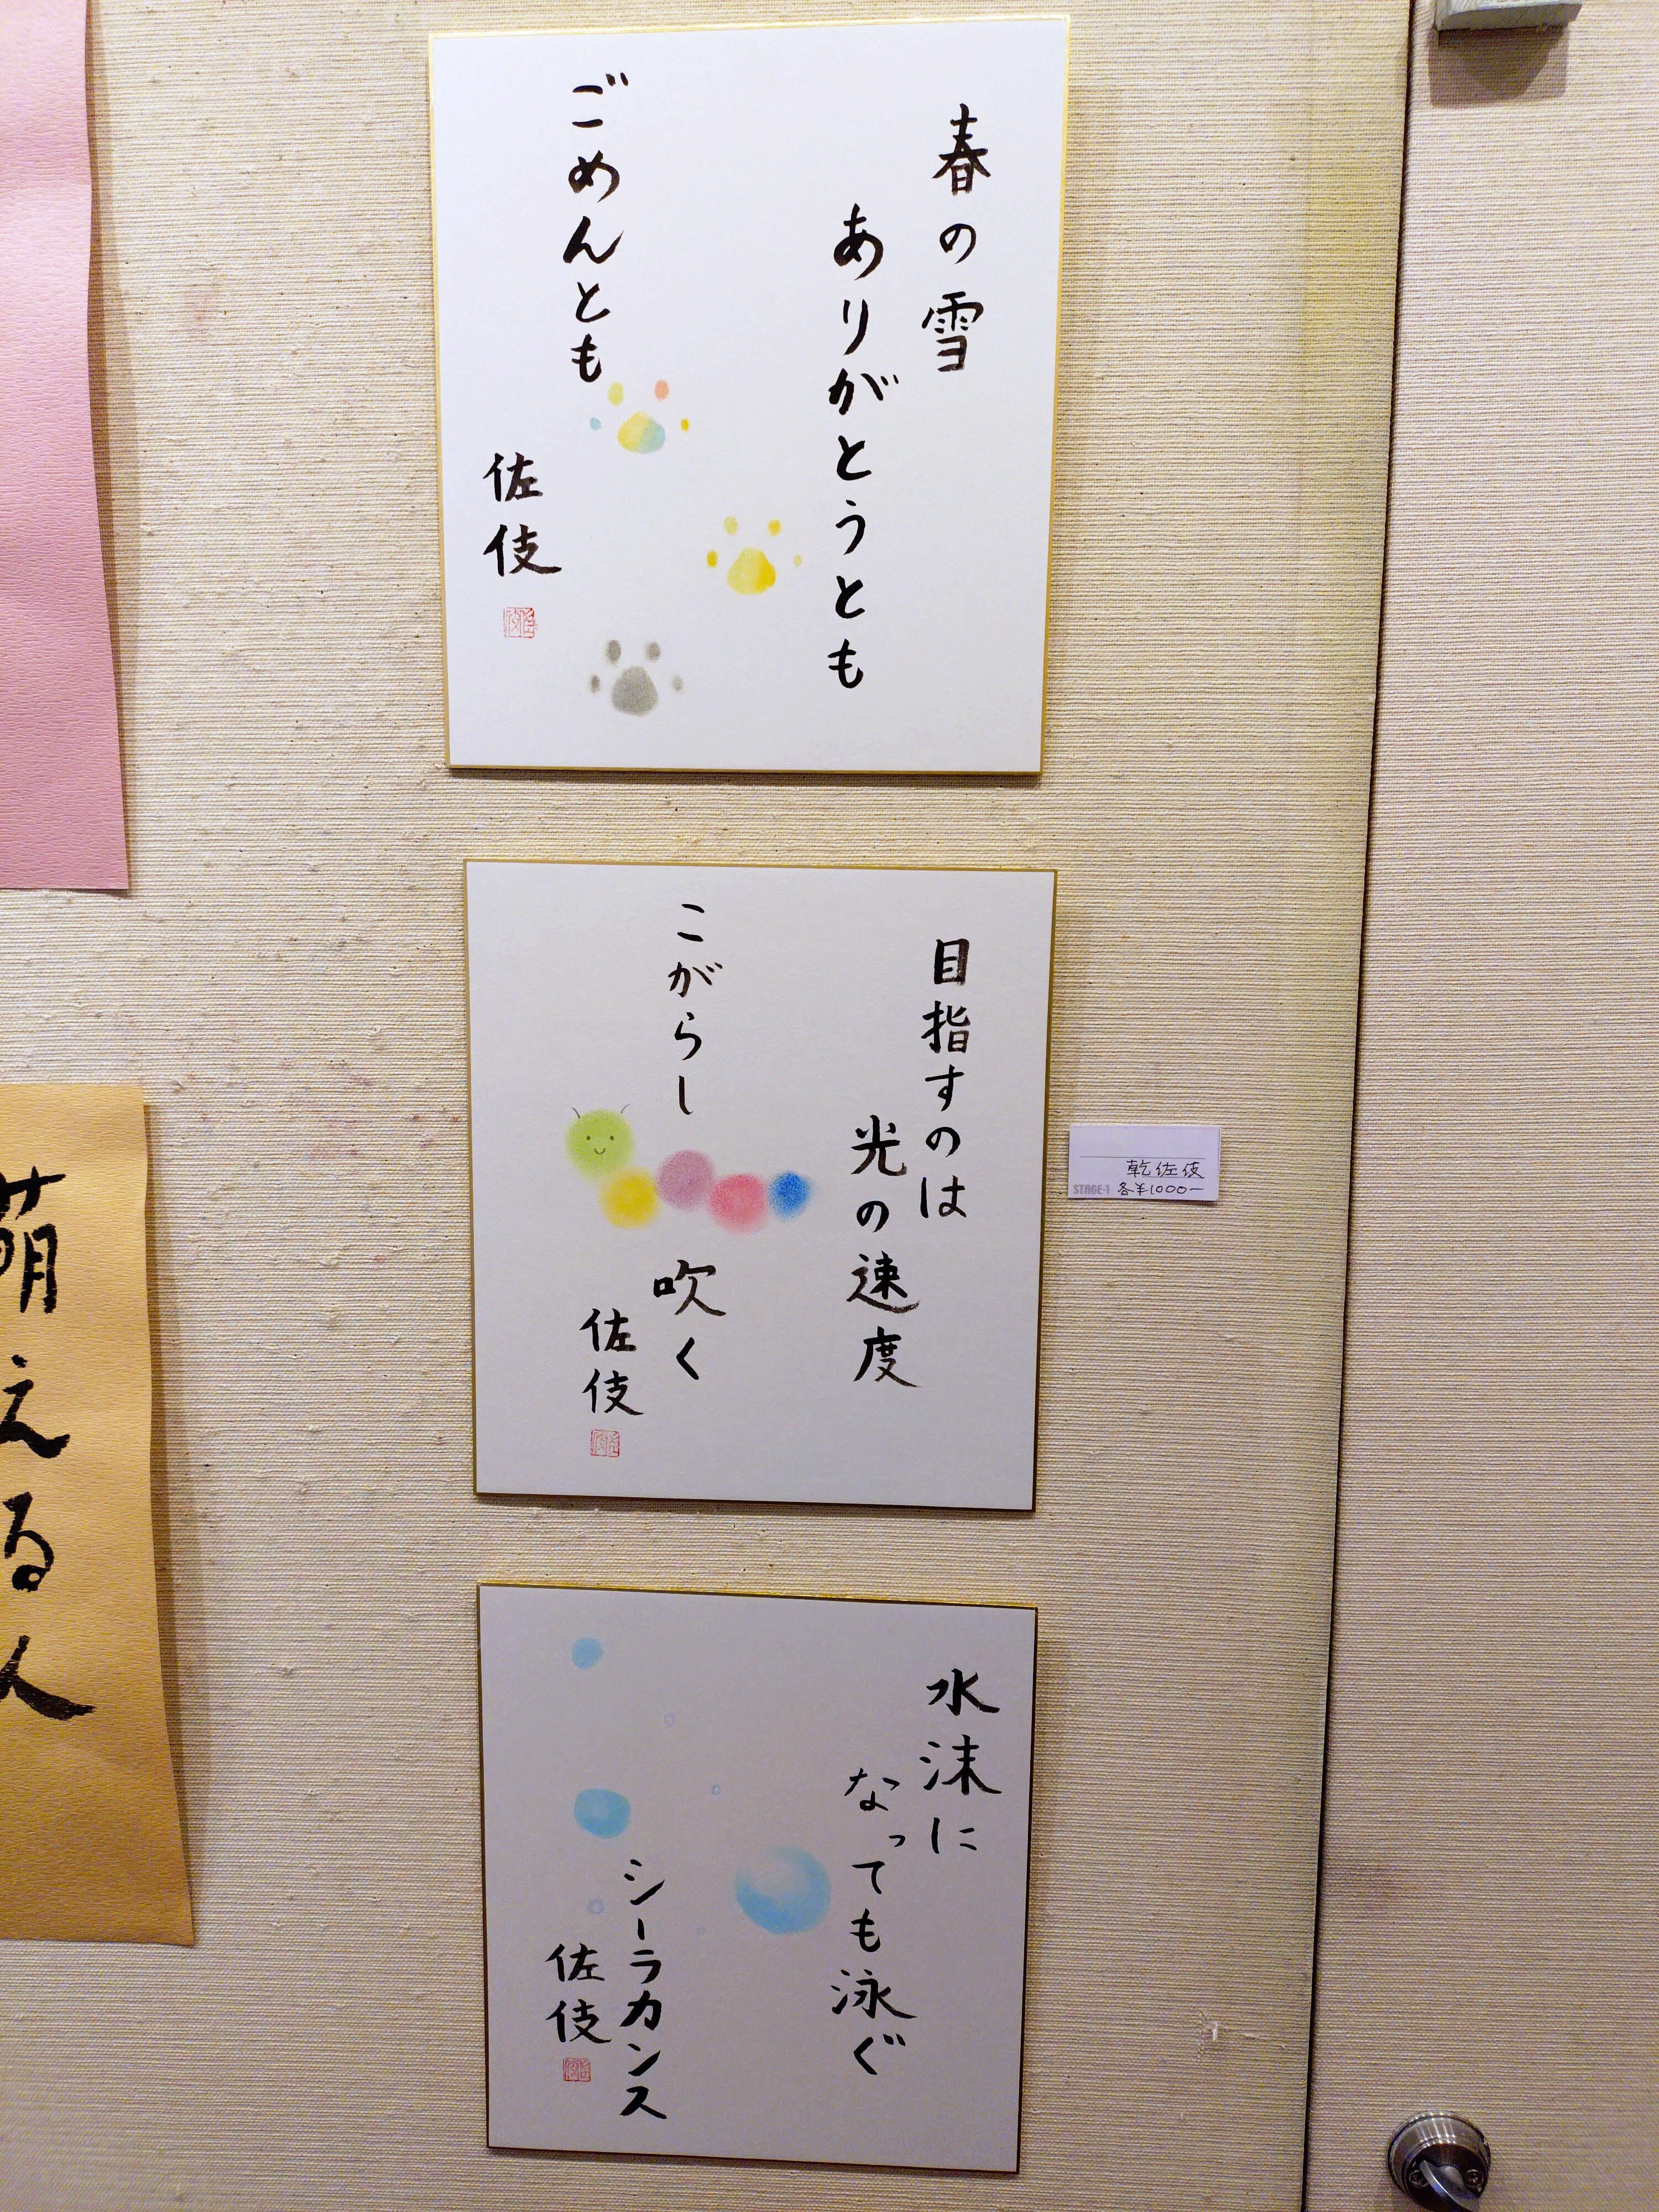 春の雪
ありがとうとも
ごめんとも
佐伎
目指すのは
光の速度
こがらし
吹く
佐伎
乾佐伎
STAGE-1 各¥1000-
水沫に
なっても泳ぐ
シーラカンス
佐伎
萌える人